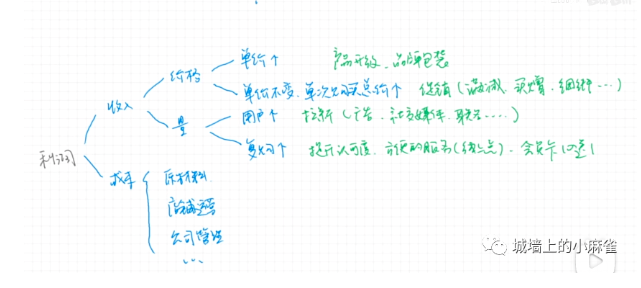 单价↑ 产品升级、品牌包装
价格
单价不变、单次购买总价↑ 促销(满减、买赠、捆绑…)
收入
用户↑ 拉新(广告、社交媒体、联名……)
量
复购↑ 提升认可度、方便的服务(线上点)、会员卡
利润
成本
原材料
店铺运营
公司管理
…
城墙上的小麻雀